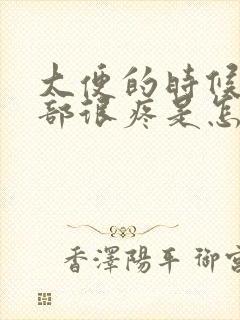 大便的時候
部很疼是怎
香澤陽平 御宮